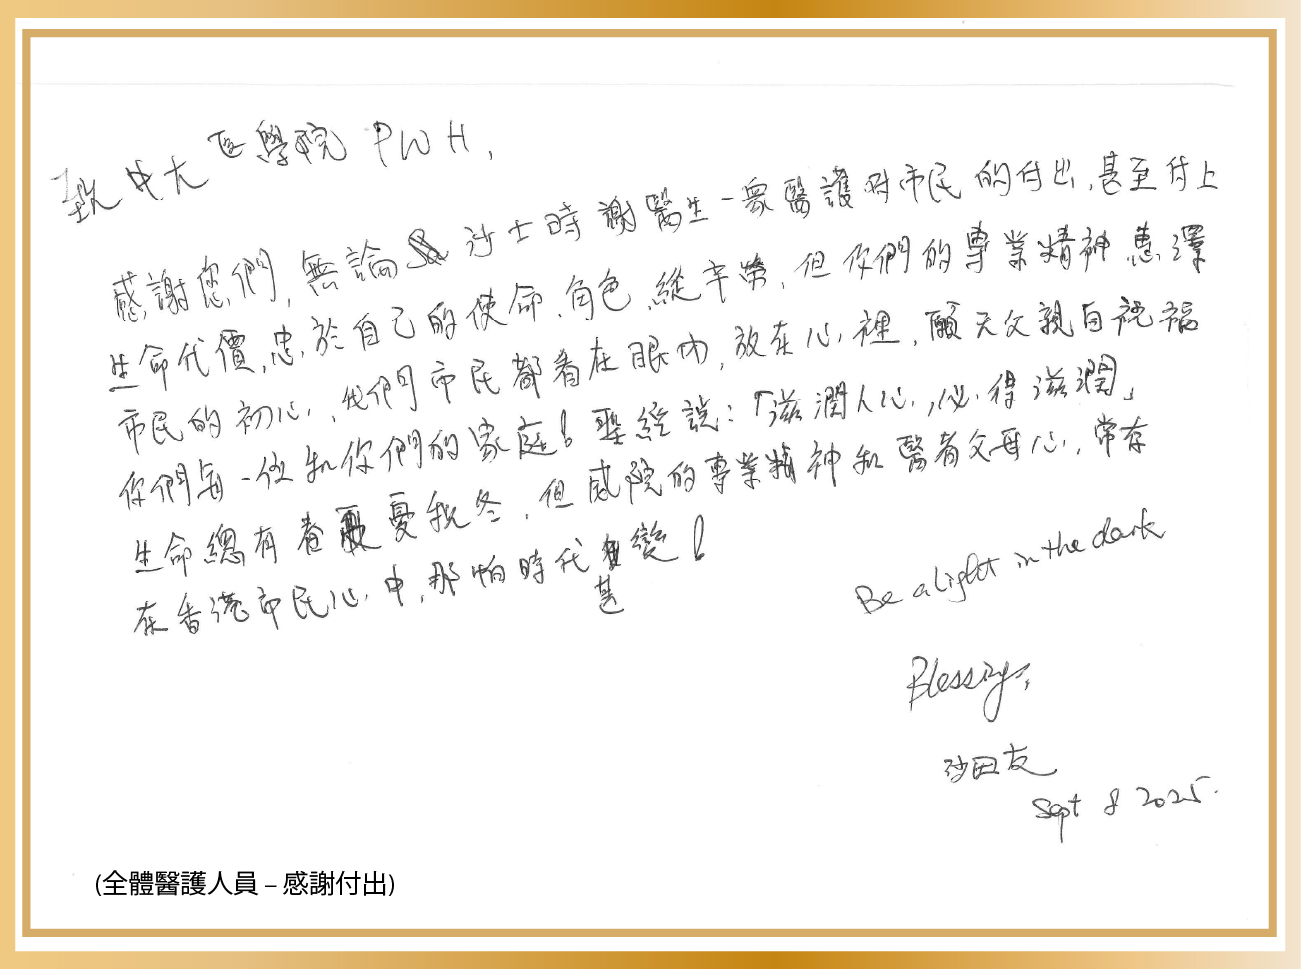 致中大医學院 PWH,
感謝您們,無論沙士時謝醫生一眾醫護對市民的付出,甚至付上
生命代價,忠於自己的使命、角色,縱辛勞,但你們的專業精神惠澤
市民的初心,我們市民都看在眼內,放在心裡,願天父親自祝福
你們每一位和你們的家庭!聖經說:「滋潤人心,必得滋潤」
生命總有春夏秋冬,但威院的專業精神和醫者父母心,常存
在香港市民心中,那怕時代甚變!
Be a light in the dark
Blessing,
沙田友
Sept 8 2025.
(全體醫護人員 – 感謝付出)